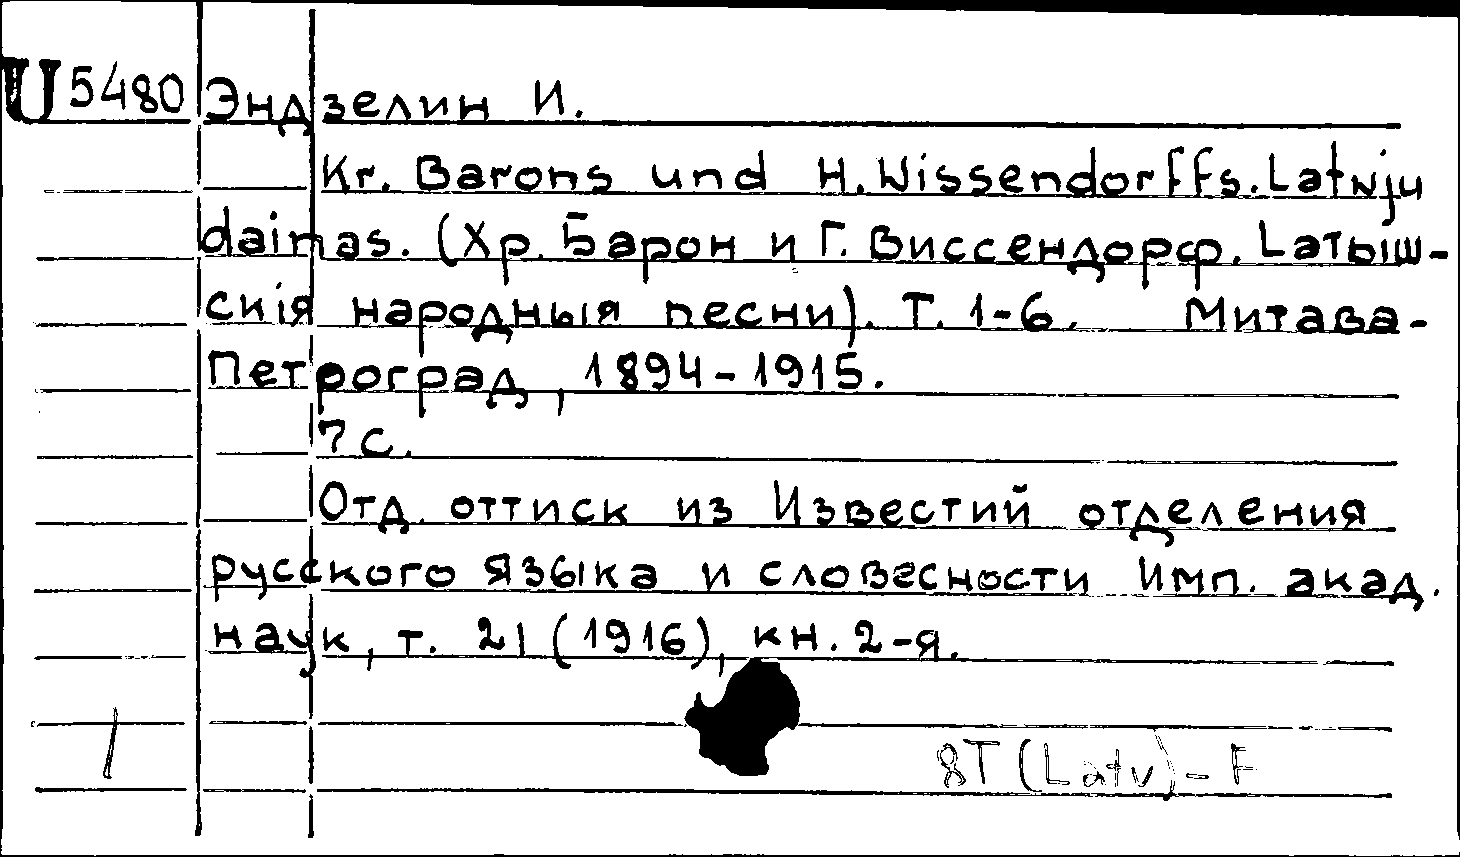 U 5480 Эндзелин И.
Kr. Barons und H. Wissendorffs. Latwju
dainas. (Хр. Барон и Г. Виссендорф. Латыш-
скія народныя песни). Т. 1-6. Митава-
Петроград, 1894-1915.
7 с.
Отд. оттиск из Известий отделения
русского языка и словесности Имп. акад.
наук, т. 21 (1916), кн. 2-я.
1
8T(Latv)-F